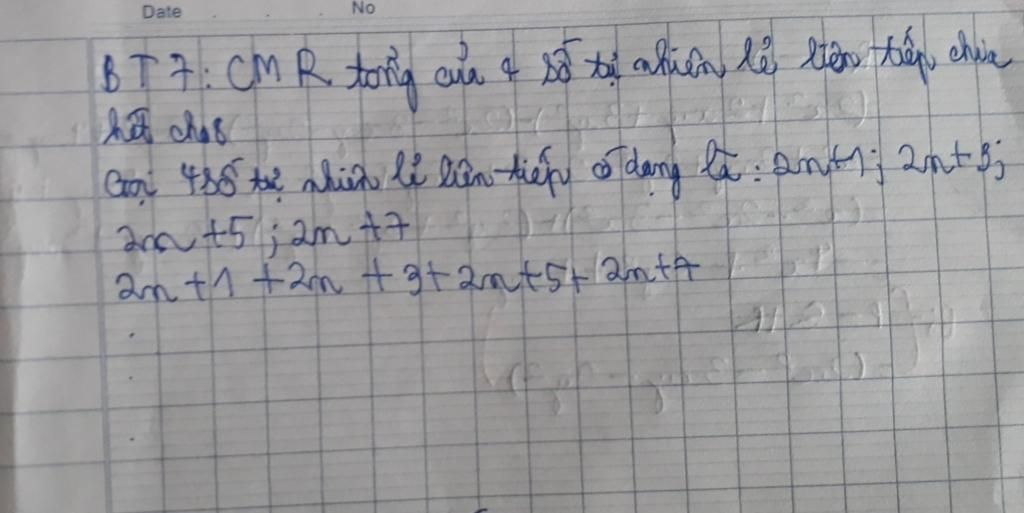 Date No
BT7: CMR tổng của 4 số tự nhiên lẻ liên tiếp chia
hết cho 8
Gọi 4 số tự nhiên lẻ liên tiếp có dạng là: 2n+1; 2n+3;
2n+5; 2n+7
2n+1+2n+3+2n+5+2n+7